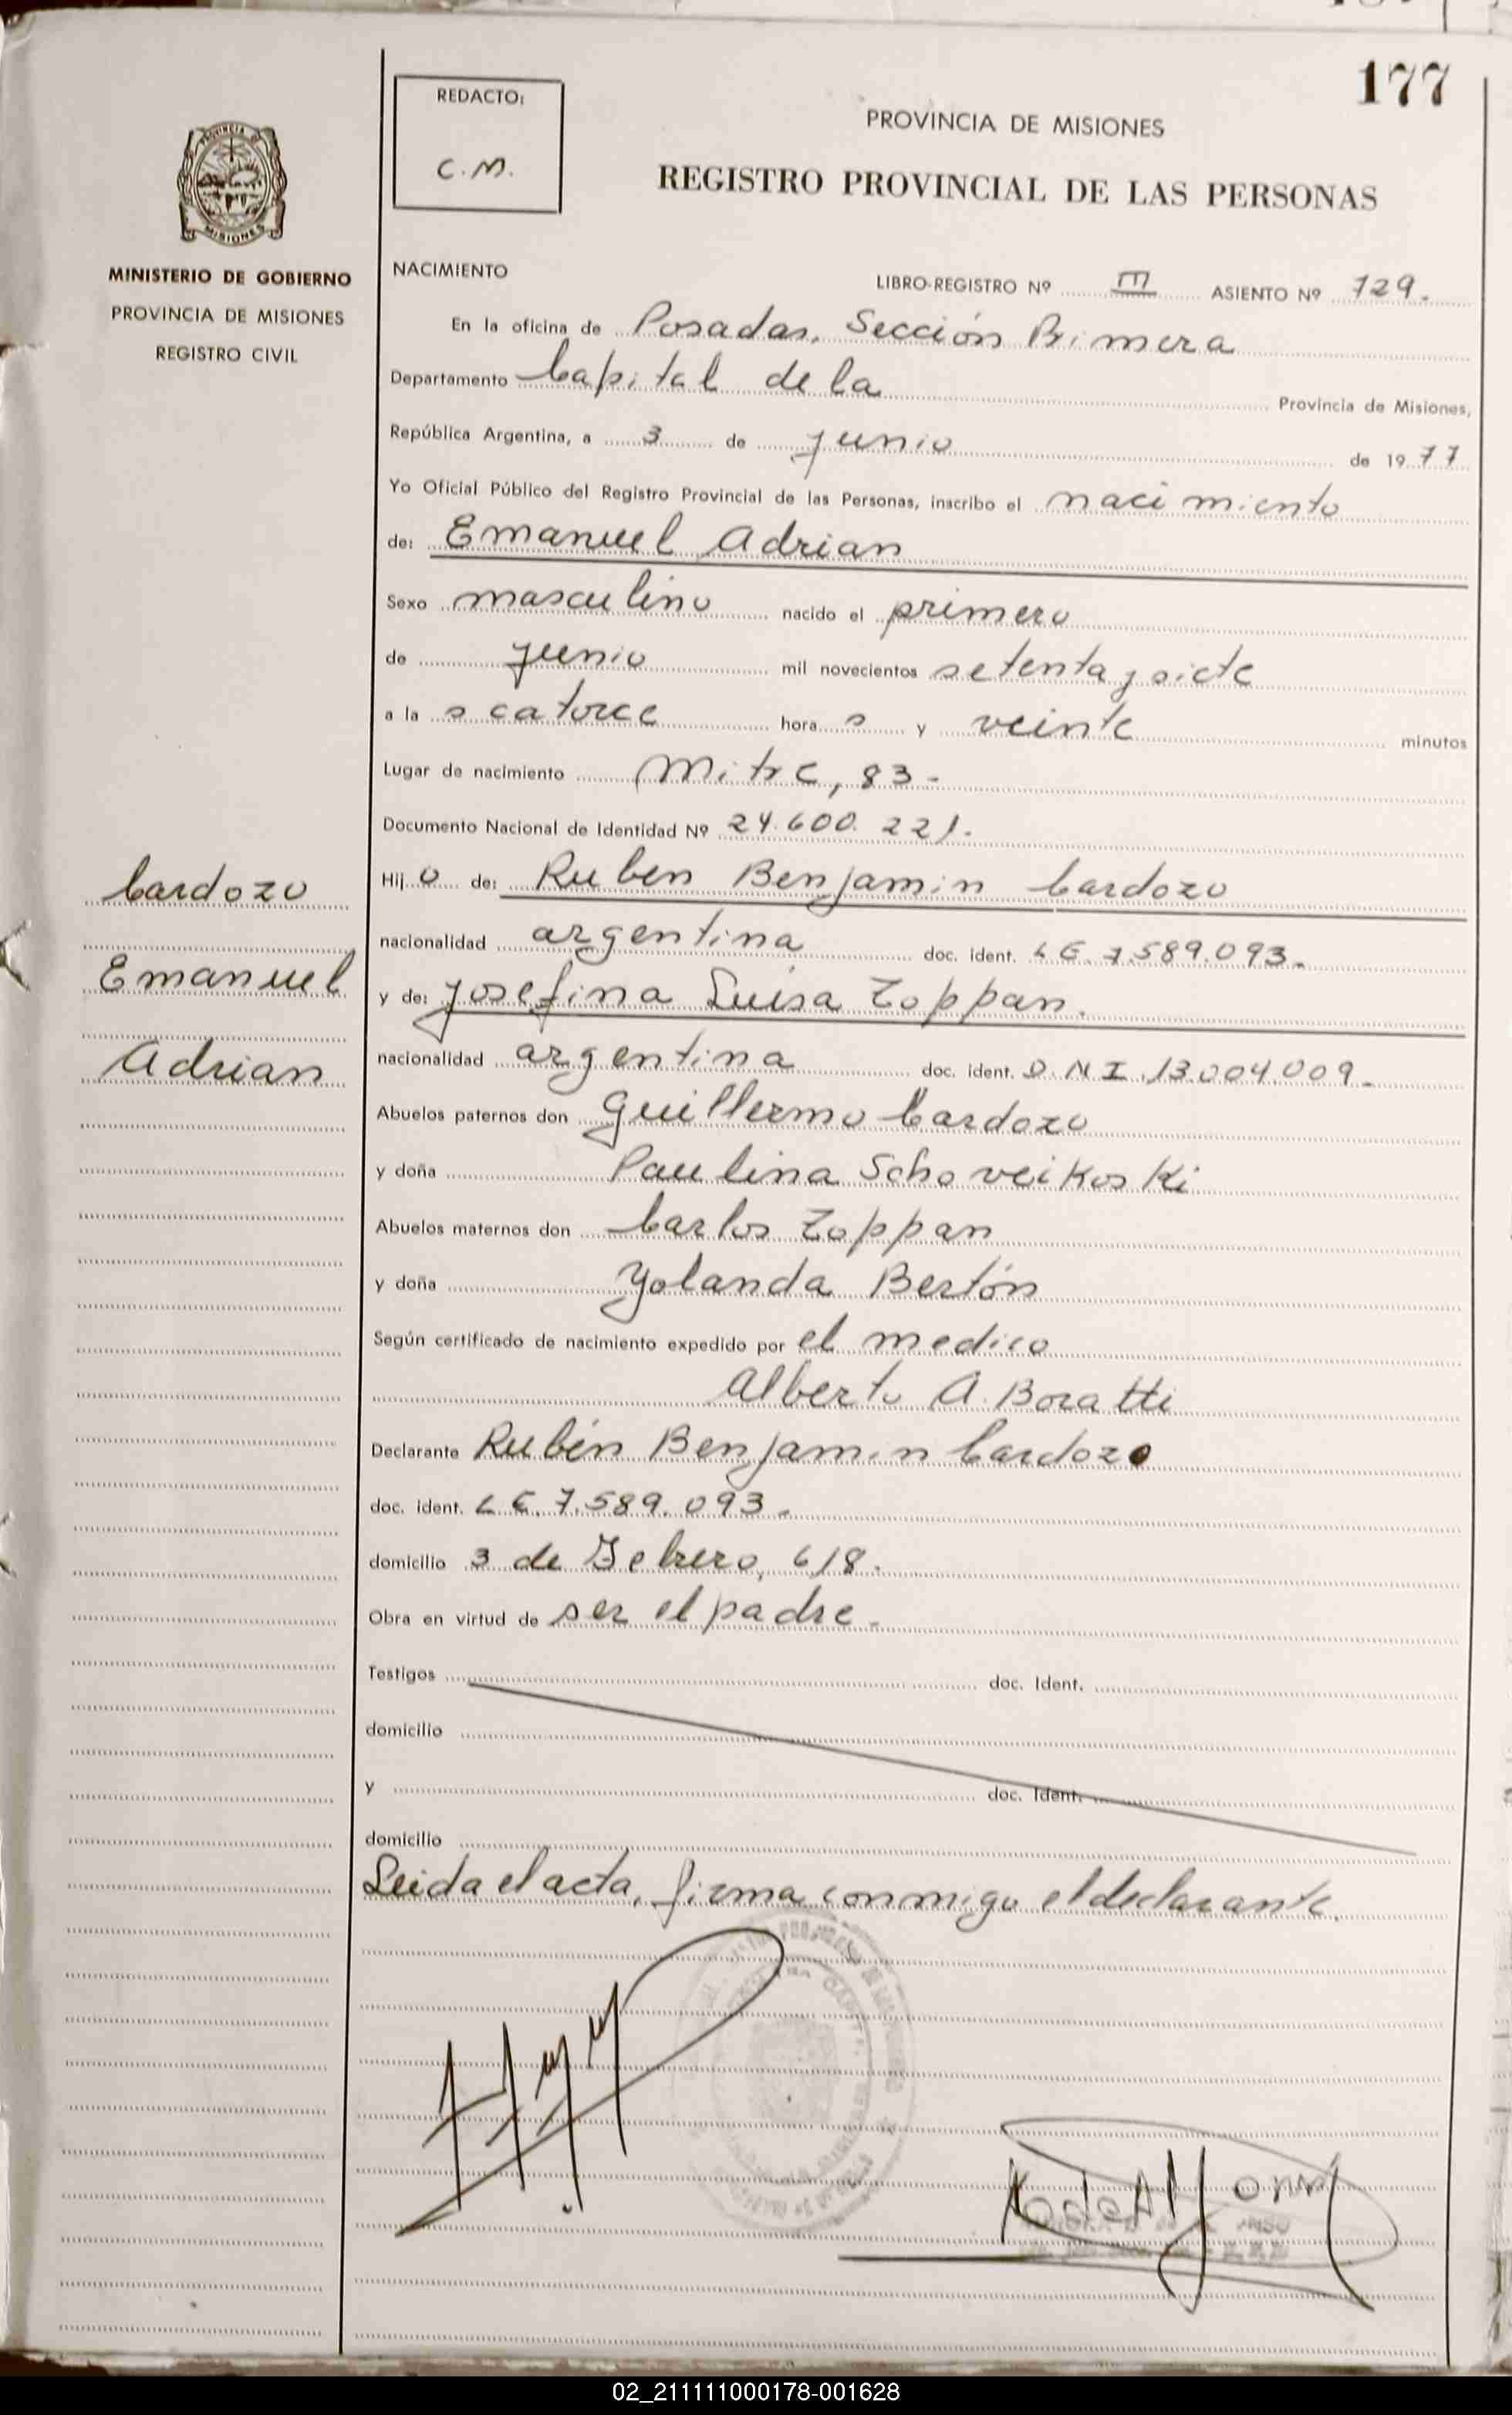 177
REDACTO:
C.M.
PROVINCIA DE MISIONES
REGISTRO PROVINCIAL DE LAS PERSONAS
MISIONES
MINISTERIO DE GOBIERNO
PROVINCIA DE MISIONES
REGISTRO CIVIL
NACIMIENTO
LIBRO-REGISTRO Nº III ASIENTO Nº 729.
En la oficina de Posadas, Sección Primera
Departamento Capital de la Provincia de Misiones,
República Argentina, a 3 de junio de 1977
Yo Oficial Público del Registro Provincial de las Personas, inscribo el nacimiento
de: Emanuel Adrian
Sexo masculino nacido el primero
de junio mil novecientos setenta y siete
a la s catorce hora s y veinte minutos
Lugar de nacimiento Mitre, 83-
Documento Nacional de Identidad Nº 24.600.221.
Hij o de: Ruben Benjamin Cardozo
nacionalidad argentina doc. ident. L E. 7.589.093.-
y de: Josefina Luisa Zoppan.
nacionalidad argentina doc. ident. D.N.I. 13.004.009.-
Abuelos paternos don Guillermo Cardozo
y doña Paulina Schoveikoski
Abuelos maternos don Carlos Zoppan
y doña Yolanda Bertón
Según certificado de nacimiento expedido por el medico
Alberto A. Boratti
Declarante Rubén Benjamin Cardozo
doc. ident. L E. 7.589.093.-
domicilio 3 de Febrero, 618.
Obra en virtud de ser el padre.-
Testigos doc. Ident.
domicilio
y doc. Ident.
domicilio
Leida el acta, firma conmigo el declarante.
Cardozo
Emanuel
Adrian
02_211111000178-001628